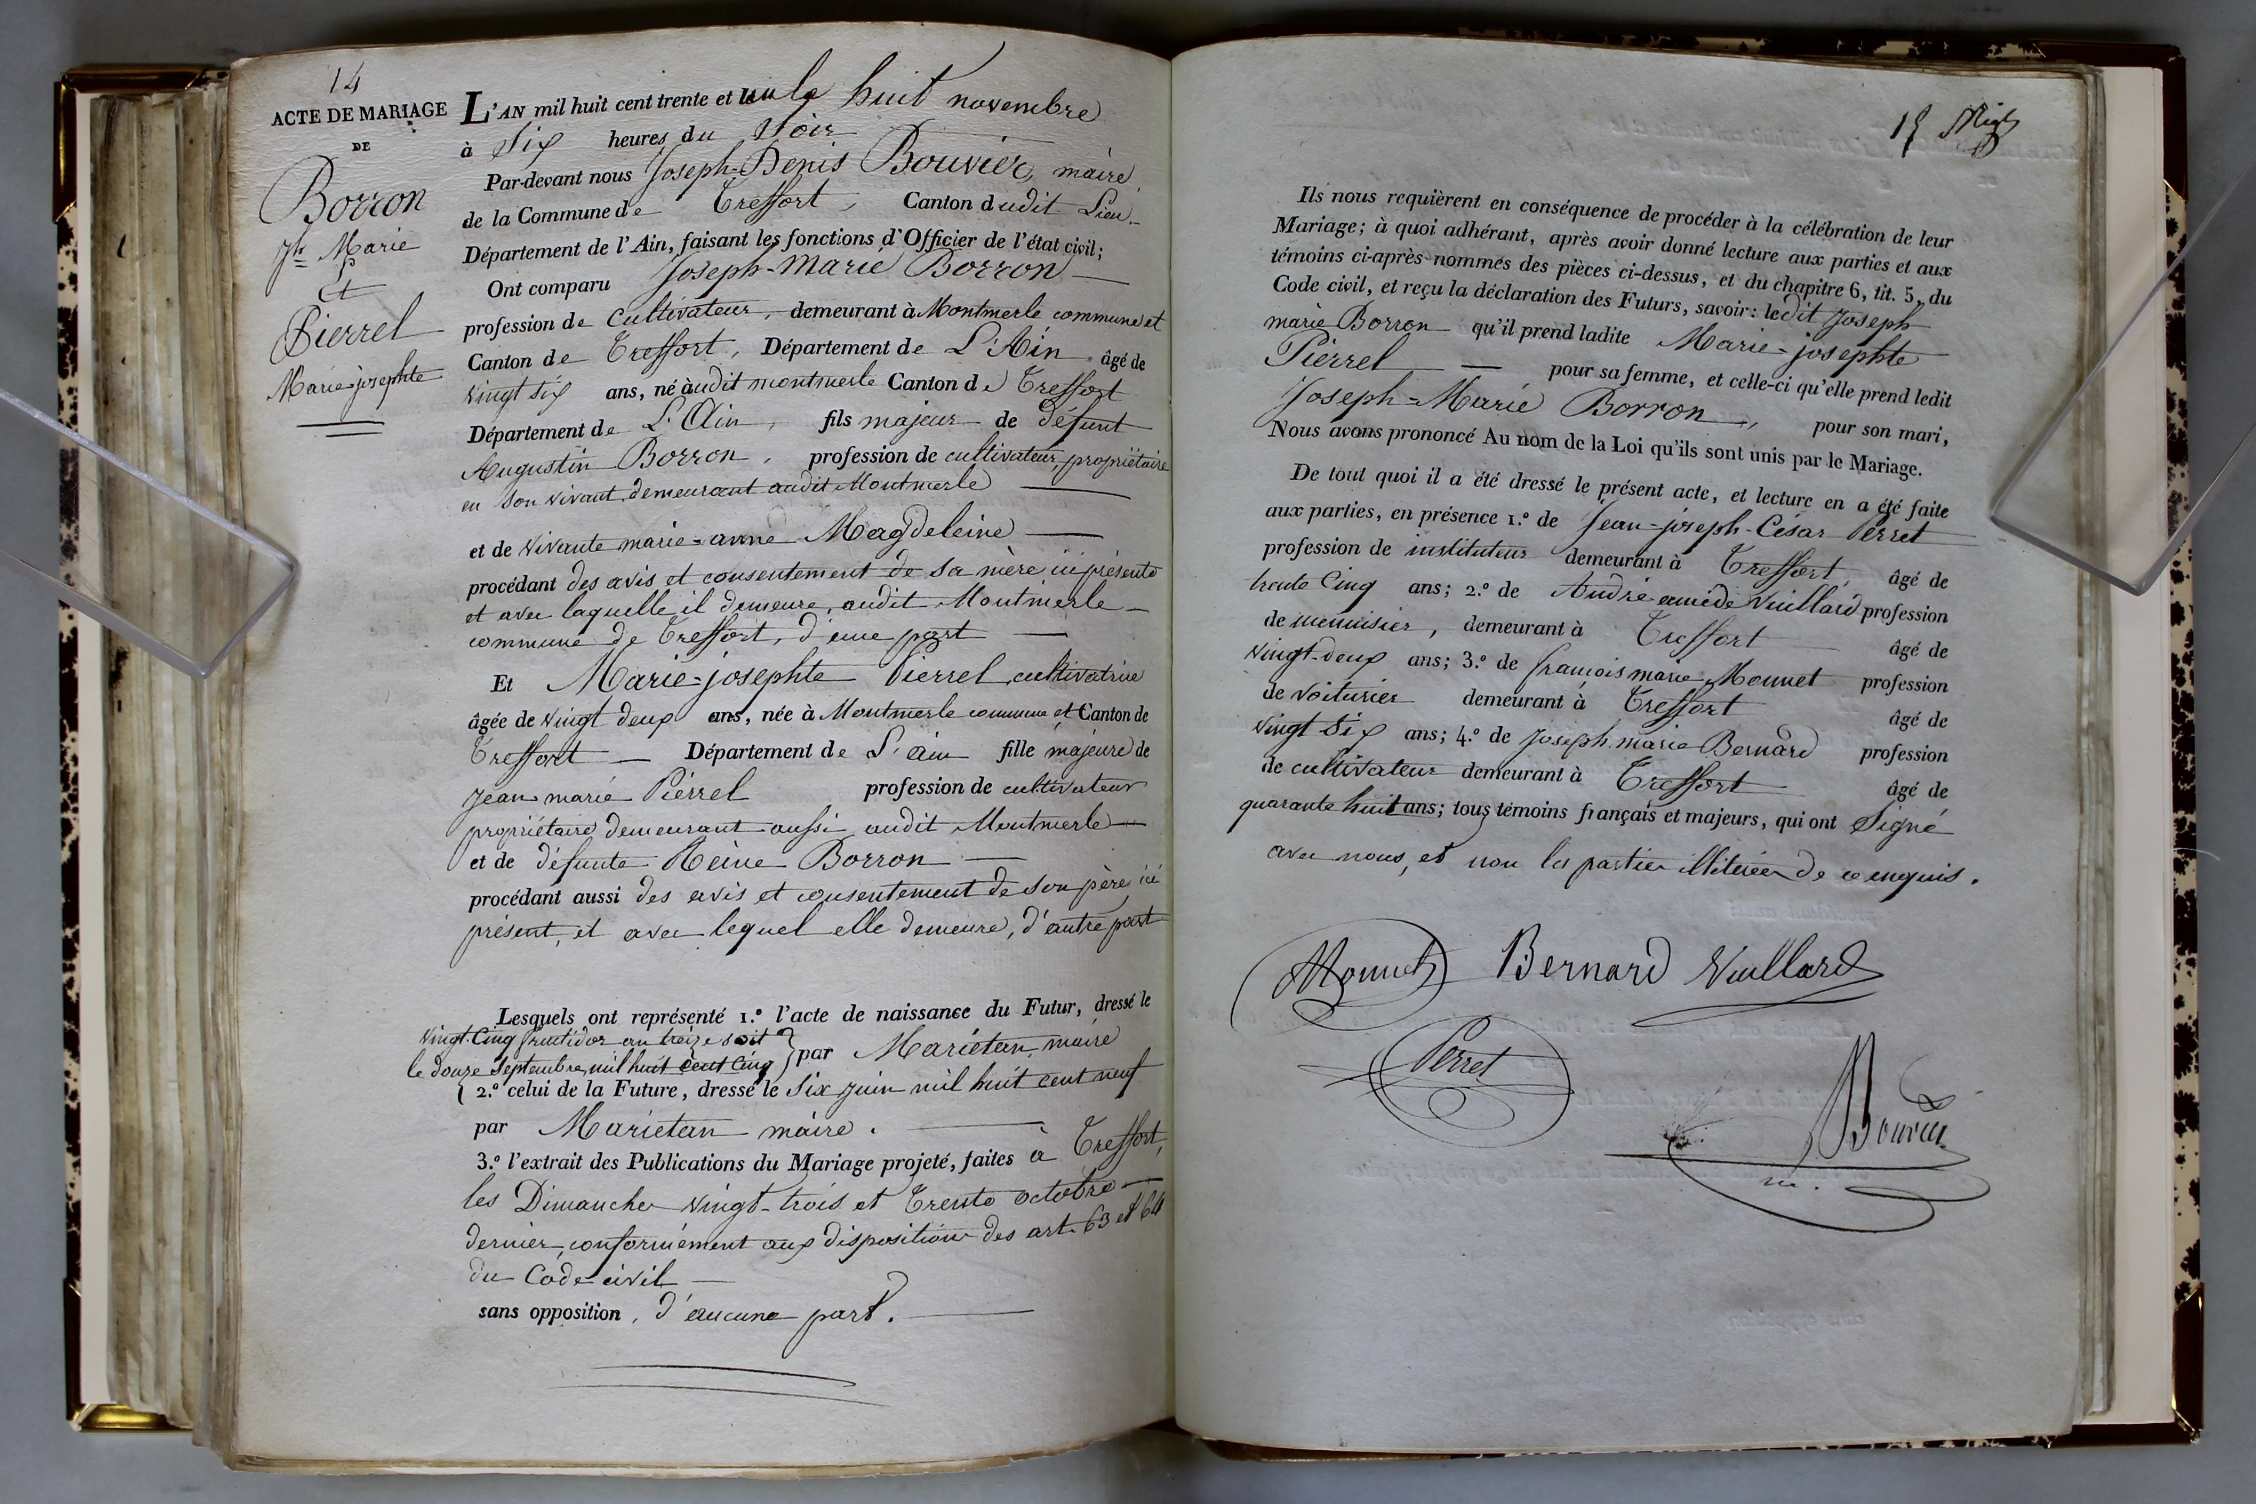 14
ACTE DE MARIAGE
DE
Borron
Jh Marie
Et
Pierrel
Marie-josephte
L'AN mil huit cent trente et un le huit novembre
à Six heures du Soir
Par-devant nous Joseph-Denis Bouvier, maire
de la Commune de Treffort, Canton dudit Lieu
Département de l'Ain, faisant les fonctions d'Officier de l'état civil;
Ont comparu Joseph-Marie Borron
profession de Cultivateur, demeurant à Montmerle commune et
Canton de Treffort, Département de L'Ain âgé de
vingt six ans, né àudit montmerle Canton de Treffort
Département de L'Ain, fils majeur de défunt
Augustin Borron, profession de cultivateur, propriétaire
en son vivant demeurant audit Montmerle
et de vivante marie-anne Magdeleine
procédant des avis et consentement de sa mère ici présente
et avec laquelle il demeure, audit Montmerle
commune de Treffort, d'une part
Et Marie-josephte Pierrel cultivatrice
âgée de vingt deux ans, née à Montmerle commune et Canton de
Treffort Département de L'ain fille majeure de
Jean marie Pierrel profession de cultivateur
propriétaire demeurant aussi audit Montmerle
et de défunte Reine Borron
procédant aussi des avis et consentement de son père ici
présent, et avec lequel elle demeure, d'autre part
Lesquels ont représenté 1.° l'acte de naissance du Futur, dressé le
vingt-Cinq fructidor an treize soit
le douze Septembre mil huit Cent Cinq } par Marietan, maire
2.° celui de la Future, dressé le Six juin mil huit cent neuf
par Marietan maire.
3.° l'extrait des Publications du Mariage projeté, faites à Treffort,
les Dimanches vingt-trois et Trente octobre
dernier, conformément aux dispositions des art. 63 et 64
du Code civil
sans opposition, d'aucune part.
15
Ils nous requièrent en conséquence de procéder à la célébration de leur
Mariage; à quoi adhérant, après avoir donné lecture aux parties et aux
témoins ci-après nommés des pièces ci-dessus, et du chapitre 6, tit. 5, du
Code civil, et reçu la déclaration des Futurs, savoir: ledit Joseph
marie Borron qu'il prend ladite Marie-josephte
Pierrel pour sa femme, et celle-ci qu'elle prend ledit
Joseph-Marie Borron, pour son mari,
Nous avons prononcé Au nom de la Loi qu'ils sont unis par le Mariage.
De tout quoi il a été dressé le présent acte, et lecture en a été faite
aux parties, en présence 1.° de Jean-joseph-César Perret
profession de instituteur demeurant à Treffort, âgé de
trente Cinq ans; 2.° de André amédé Vuillard profession
de menuisier, demeurant à Treffort âgé de
vingt-deux ans; 3.° de françois marie Monnet profession
de Voiturier demeurant à Treffort âgé de
vingt Six ans; 4.° de Joseph marie Bernard profession
de cultivateur demeurant à Treffort âgé de
quarante huit ans; tous témoins français et majeurs, qui ont Signé
avec nous, et non les parties illiterées de ce enquis.
Monnet Bernard Vuillard
Perret
Bouvier
m.